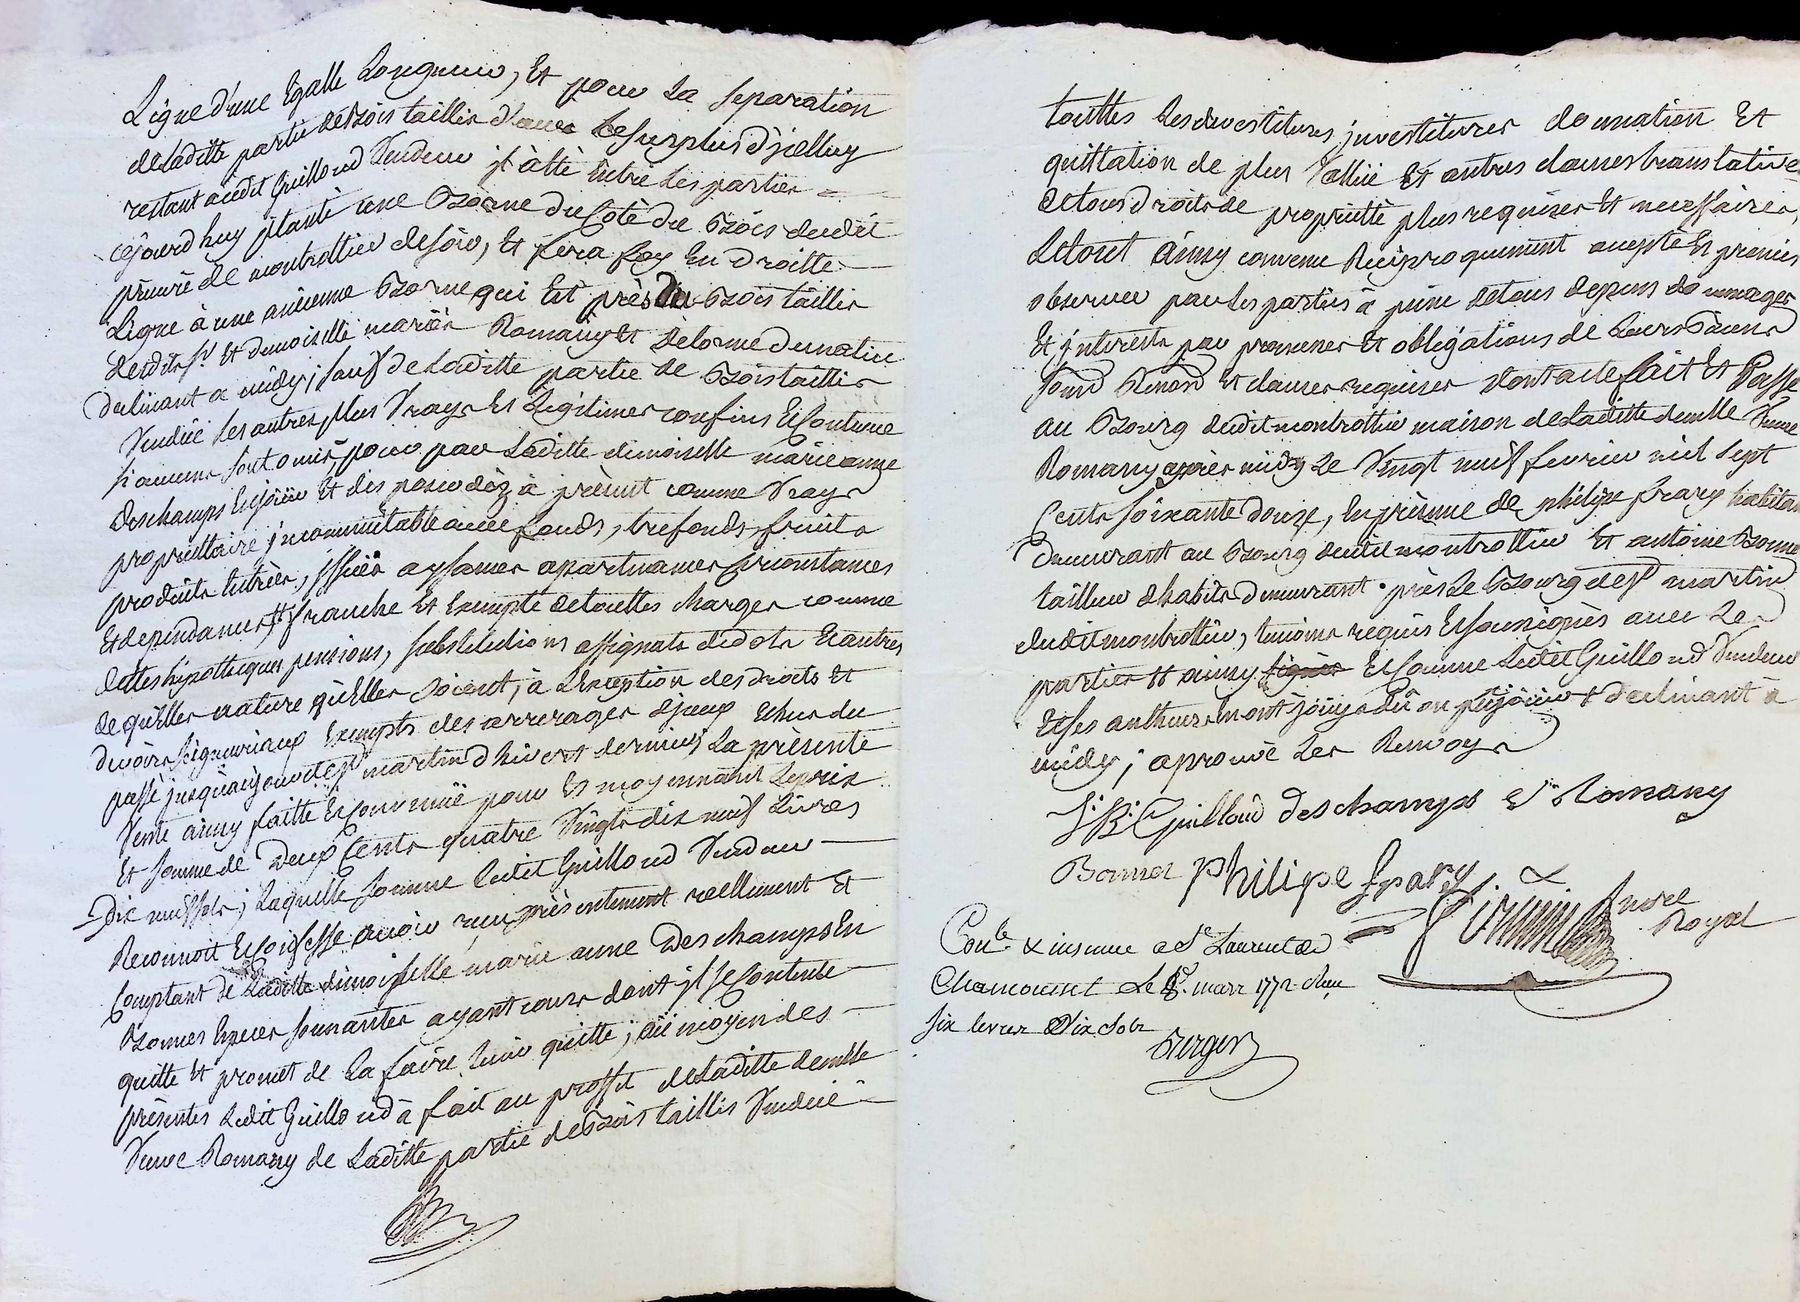 Ligne d'une Egalle Longueur, Et pour la separation
de Laditte partie de Bois taillis d'avec le surplus d'jcelluy
restant audit Guilloud Vendeur jl à èté Entre les parties
cejourd'huy plantè une Borne du Cotè du Bois dudit
prieurè de montrottier de soir, Et fera foy En droitte
Ligne à une ancienne Borne qui Est près du Bois taillis
desdits sr. Et demoiselle mariès Romany Et Delorme de matin
declinant a midy; sauf de Laditte partie de Bois taillis
Venduë ses autres plus Vrays Et Legitimes confins Et Contenue
si aucuns sont omis, pour par Laditte demoiselle marie anne
Deschamps En joüir Et disposer déz à prèsent comme Vraye
propriettaire jncommutable avec fonds, trefonds, fruits
produits Entrées, jssües aysances apartenances circonstances
Et dependances, # franche Et Exempte de touttes charges comme
dettes hypotheques pensions, substitutions assignats de dots Et autres
de qu'elles nature qu'elles soient, à L'exception des droits Et
devoirs seigneuriaux Exempts des arrerages d'jceux Echus du
passé jusqu'au jour de st martin d'hivert dernier; La prèsente
Vente ainsy faitte Et Convenuë pour Et moyennant Le prix
Et somme de Deux Cents quatre Vingts dix neuf Livres
Dix neuf sols; Laquelle somme Ledit Guilloud Vendeur
Reconnoit Et Confesse avoir reçu prèsentement reellement Et
Comptant de Laditte demoiselle marie anne Deschamps En
Bonnes Especes sonnantes ayant cours dont jl se Contente
quitte Et promet de La faire tenir quitte; Au moyen des
prèsentes Ledit Guilloud à fait au proffit de Laditte demlle
Veuve Romany de Laditte partie de Bois taillis Venduë
touttes Les devestitures, jnvestitures donnation Et
quittation de plus Vallüe Et autres clauses translative
de tous droits de proprietté plus requises Et necessaires,
Le tout ainsy convenu Reciproquement accepté Et promis
observer par Les parties à peine de tous depens dommages
Et jnterests par promesses Et obligations de Leurs Biens
soumd Renond Et clauses requises Dont acte fait Et Passé
au Bourg dudit montrottier maison de Laditte demlle Veuve
Romany après midy Le Vingt neuf fevrier mil sept
Cents soixante douze, En prèsence de philipe frary habitan
demeurant au Bourg dudit montrottier Et antoine Bonne
tailleur d'habits demeurant près Le Bourg de st martin
dudit montrottier, temoins requis Et soussignès avec Les
parties # ainsy signés Et Comme Ledit Guilloud Vendeur
Et ses autheurs En ont jöüy ou dû ou pû jöüir + declinant à
midy; aprouvé Les Renvoys
J. B. Guilloud Deschamps Ve Romany
Bonnet Philipe frary
Nore Royal
Conle & insinué a St Laurent de
Chamousset Le 8. mars 1772 Reçu
six livres Dix sols